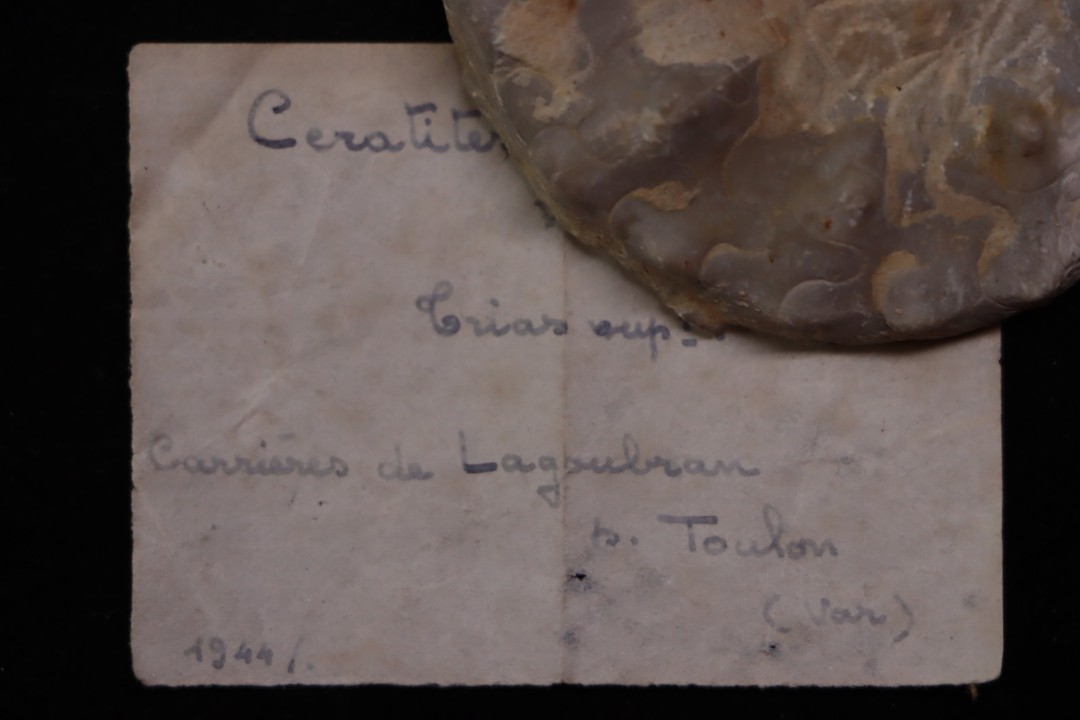 Ceratites
Trias sup.
Carrières de Lagoubran
p. Toulon
(Var)
1944/.